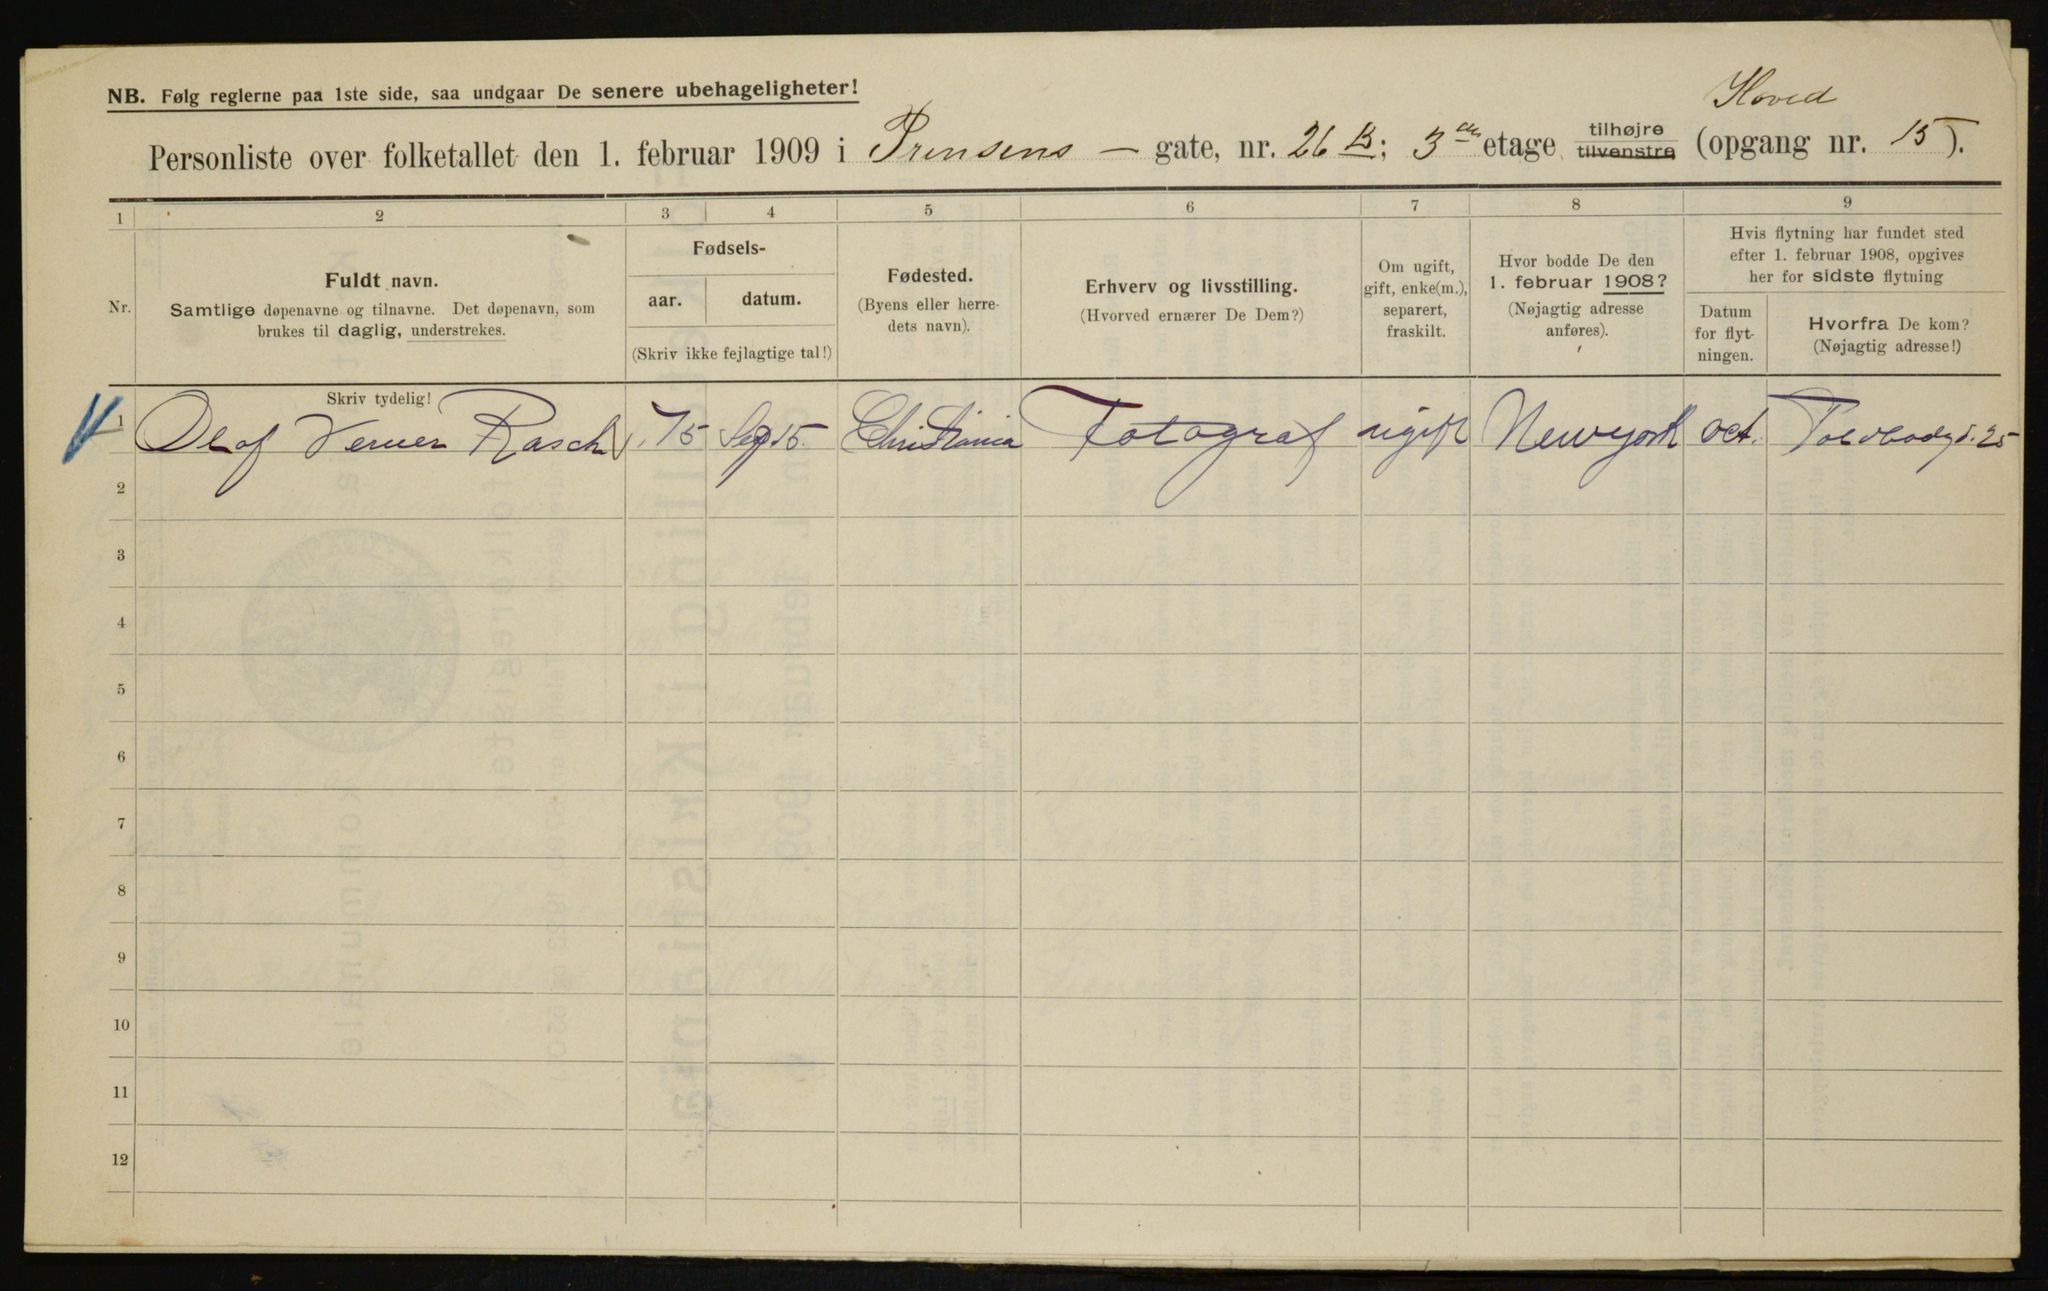 NB. Følg reglerne paa 1ste side, saa undgaar De senere ubehageligheter!
Hoved
Personliste over folketallet den 1. februar 1909 i Prinsens — gate, nr. 26 B; 3die etage tilhøjre tilvenstre (opgang nr. 15).
1 2 3 4 5 6 7 8 9
Nr.
Fuldt navn.
Samtlige døpenavne og tilnavne. Det døpenavn, som
brukes til daglig, understrekes.
Fødsels-
aar. datum.
(Skriv ikke fejlagtige tal!)
Fødested.
(Byens eller herre-
dets navn).
Erhverv og livsstilling.
(Hvorved ernærer De Dem?)
Om ugift,
gift, enke(m.),
separert,
fraskilt.
Hvor bodde De den
1. februar 1908?
(Nøjagtig adresse
anføres).
Hvis flytning har fundet sted
efter 1. februar 1908, opgives
her for sidste flytning
Datum
for flyt-
ningen.
Hvorfra De kom?
(Nøjagtig adresse!)
Skriv tydelig!
1 Olaf Verner Rasch 75 Sep 15. Christiania Fotograf ugift Newyork Oct. Toldbodgd. 25
2
3
4
5
6
7
8
9
10
11
12